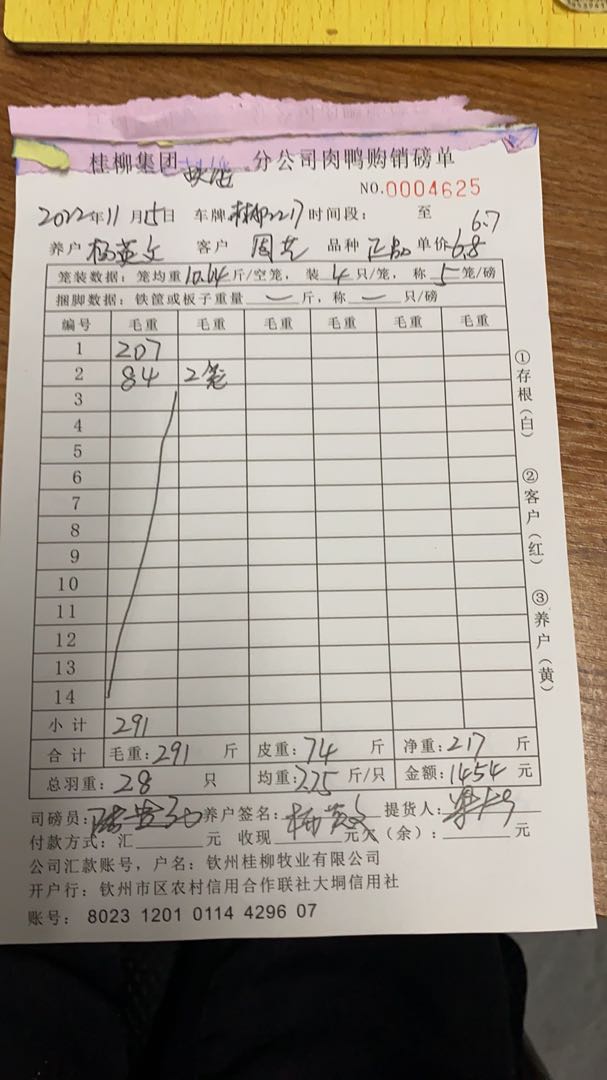 桂柳集团 分公司肉鸭购销磅单
NO.0004625
2022年11月15日 车牌 桂柳2217 时间段: 至
6.7
养户 杨英文 客户 周艺 品种 正品 单价 6.8
笼装数据: 笼均重10.64斤/空笼, 装4只/笼, 称5笼/磅
捆脚数据: 铁筐或板子重量 — 斤, 称 — 只/磅
编号 毛重 毛重 毛重 毛重 毛重 毛重
1 207
2 84 2笼
3
4
5
6
7
8
9
10
11
12
13
14
小计 291
合计 毛重: 291 斤 皮重: 74 斤 净重: 217 斤
总羽重: 28 只 均重: 7.75 斤/只 金额: 1454 元
司磅员: 养户签名: 杨英文 提货人:
付款方式: 汇 元 收现 元欠(余): 元
公司汇款账号, 户名: 钦州桂柳牧业有限公司
开户行: 钦州市区农村信用合作联社大垌信用社
账号: 8023 1201 0114 4296 07
①存根(白)
②客户(红)
③养户(黄)